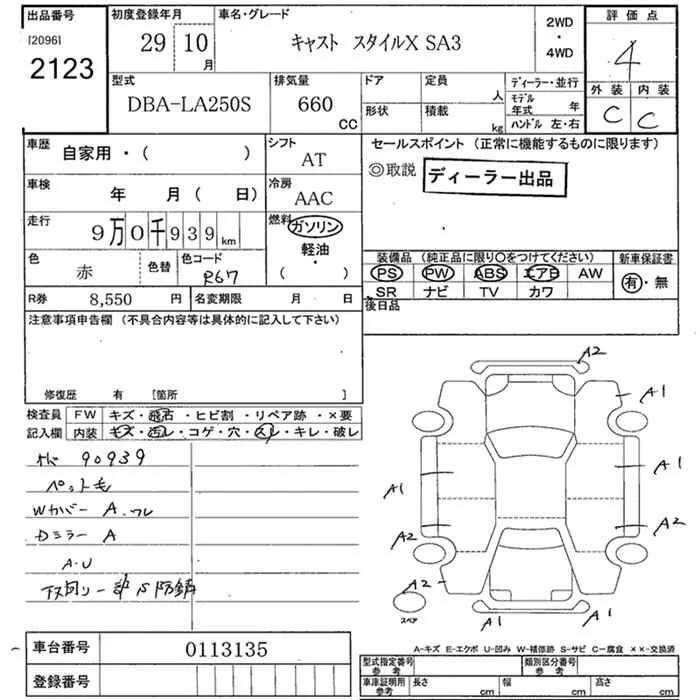 出品番号 初度登録年月 車名・グレード 2WD・4WD 評価点
[2096]
2123 29 10月 キャスト スタイルX SA3 4
型式 排気量 ドア 定員 人 ディーラー・並行 外装 内装
DBA-LA250S 660 CC 形状 積載 kg モデル年式 年 C C
ハンドル 左・右
車歴 自家用・( ) シフト AT セールスポイント (正常に機能するものに限ります)
◎取説 ディーラー出品
車検 年 月( 日) 冷房 AAC
走行 9万0千939km 燃料 ガソリン・軽油・( )
色 赤 色替 色コード R67
装備品 (純正品に限り○をつけてください) 新車保証書
PS PW ABS エアB AW 有・無
SR ナビ TV カワ
R券 8,550 円 名変期限 月 日 後日品
注意事項申告欄 (不具合内容等は具体的に記入して下さい)
修復歴 有 [箇所 ]
検査員記入欄 FW キズ・飛石・ヒビ割・リペア跡・×要
内装 キズ・汚レ・コゲ・穴・スレ・キレ・破レ
90939
ペット毛
Wカバー A.ワレ
Dミラー A
A.U
A2
A1
A1
A1
A2
A2
A2
A1
A1
スペア
A-キズ E-エクボ U-凹み W-補修跡 S-サビ C-腐食 ××-交換済
車台番号 0113135
登録番号
型式指定番号 参考 類別区分番号 参考
車庫証明用 参考 長さ cm 幅 cm 高さ cm